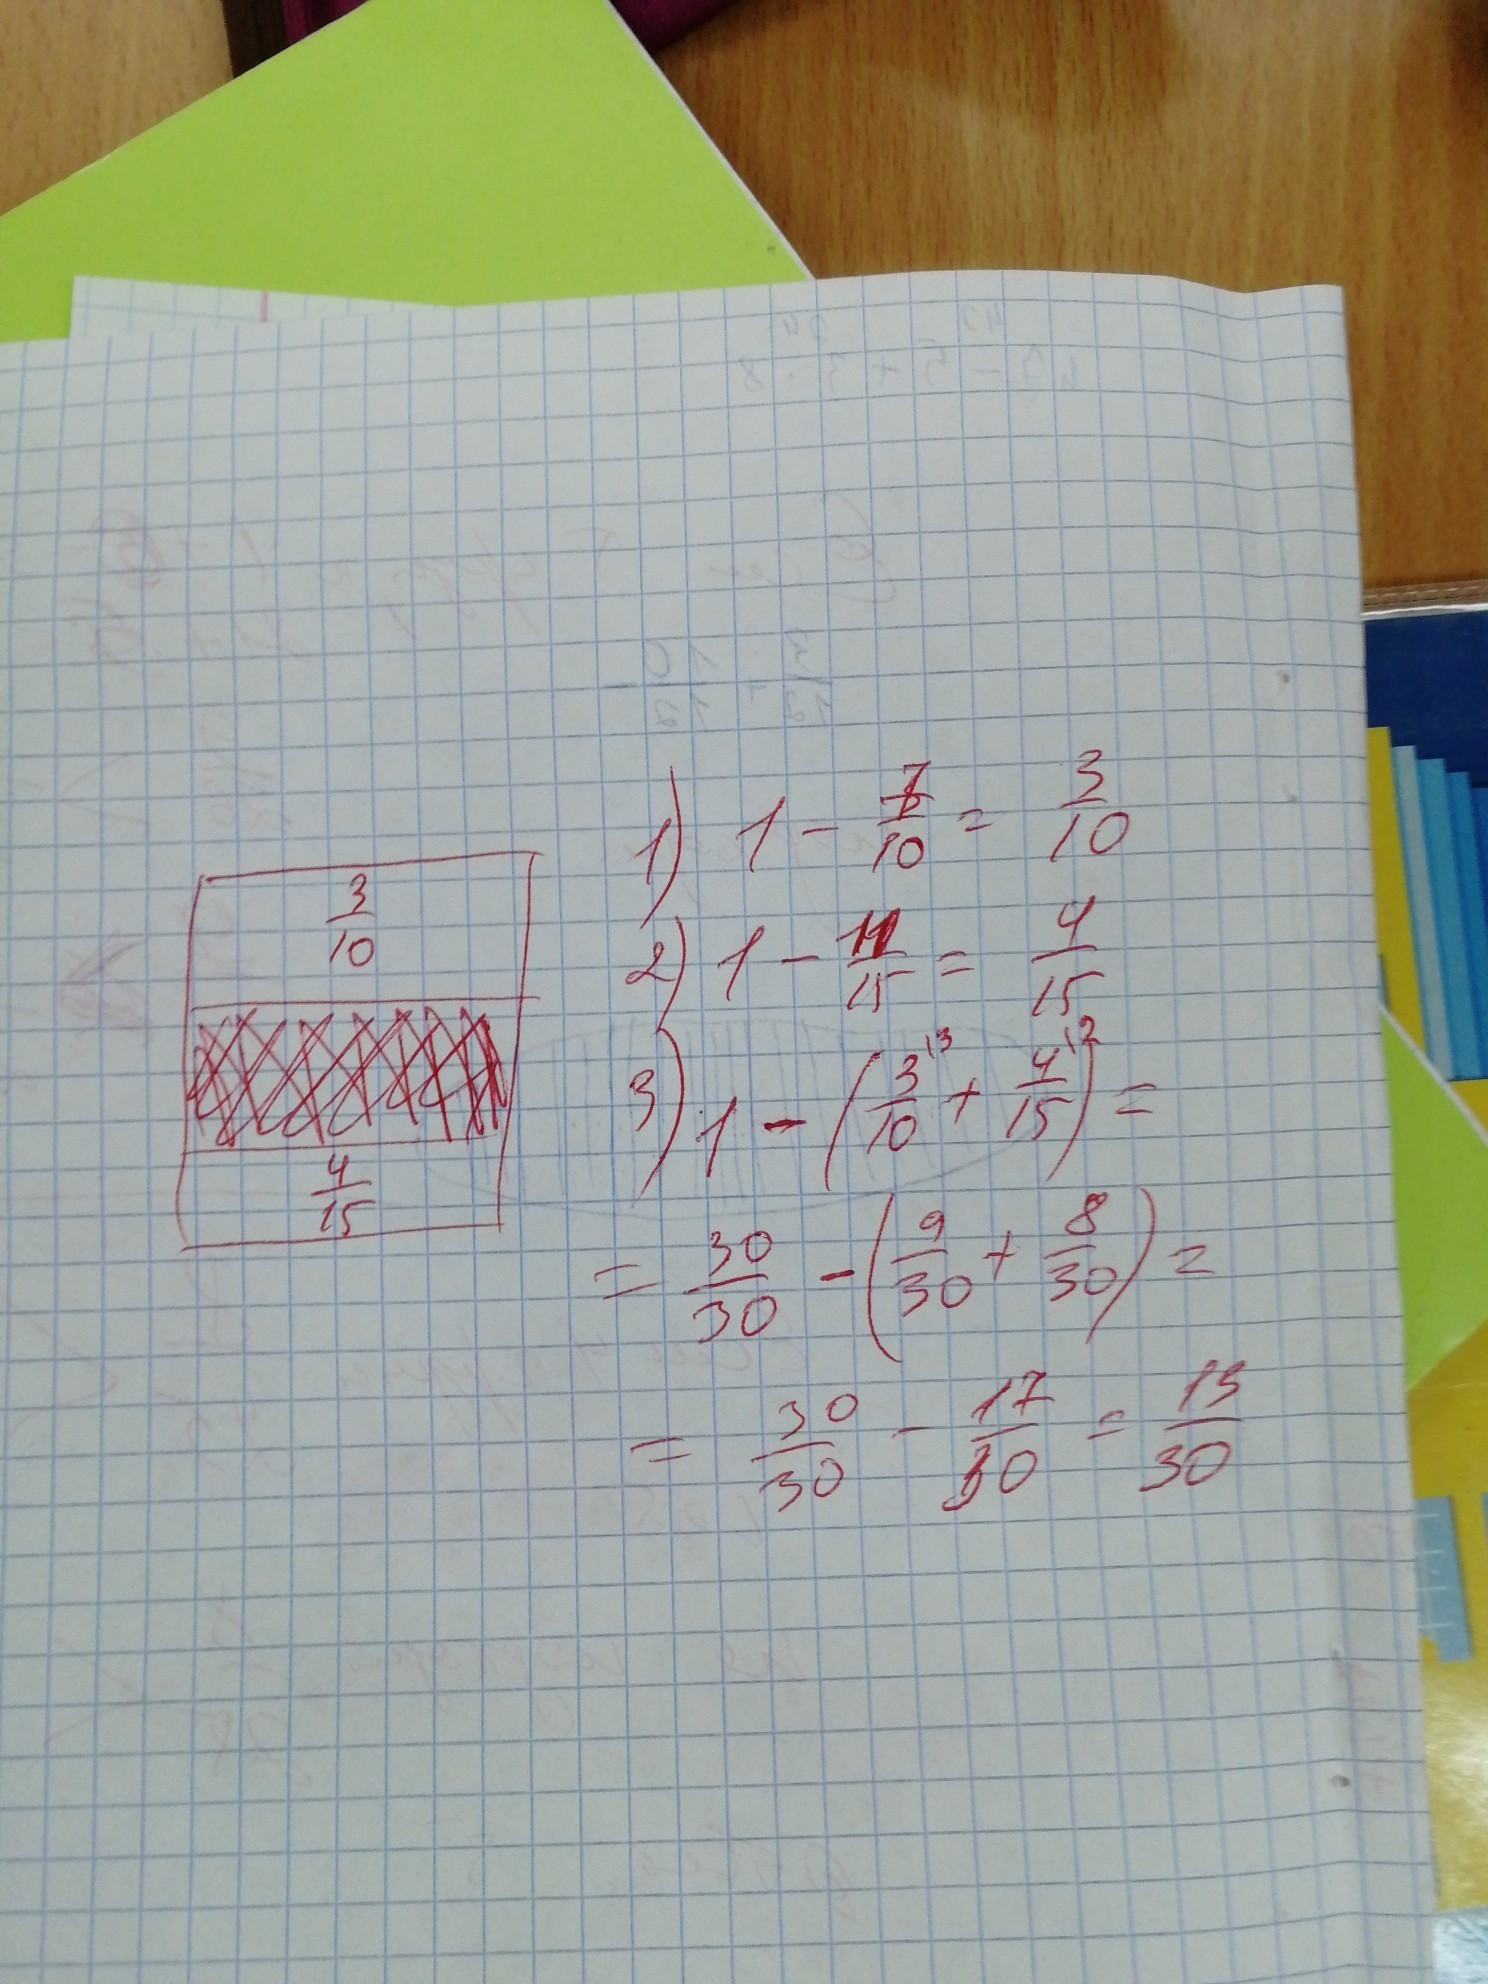 3/10
4/15
1) 1 - 7/10 = 3/10
2) 1 - 11/15 = 4/15
3) 1 - (3/10 \3 + 4/15 \2) =
= 30/30 - (9/30 + 8/30) =
= 30/30 - 17/30 = 13/30